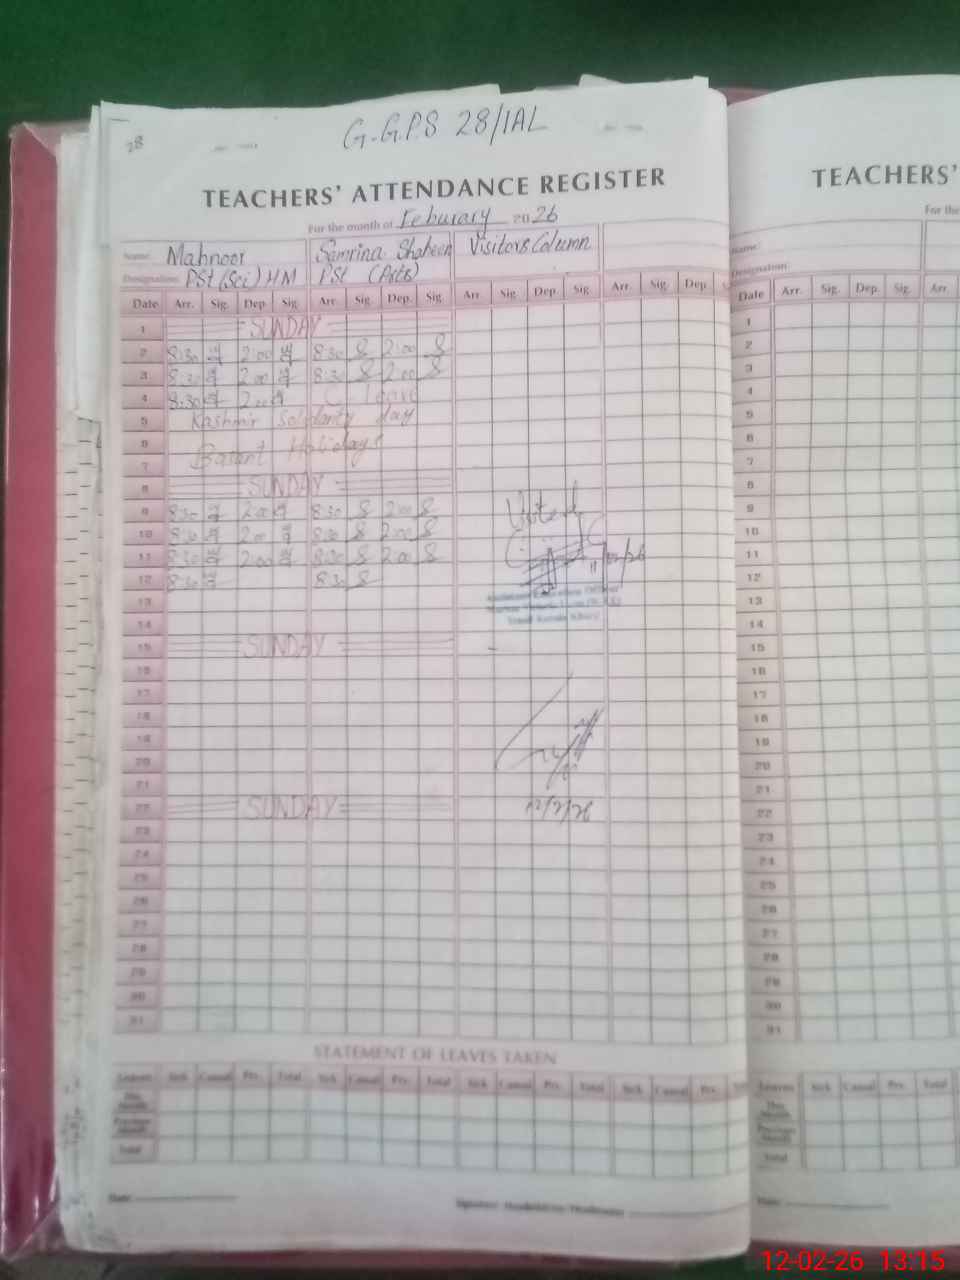 28
G.G.P.S 28/1AL
TEACHERS' ATTENDANCE REGISTER
For the month of Feburary 2026
Name: Mahnoor Samrina Shaheen Visitors Column
Designation: PSt (Sci) HM PSt (Arts)
Date Arr. Sig. Dep. Sig. Arr. Sig. Dep. Sig. Arr. Sig. Dep. Sig. Arr. Sig. Dep.
1 SUNDAY
2 8:30 2:00 8:30 S 2:00 S
3 8:30 2:00 8:30 S 2:00 S
4 8:30 2:00 C. leave
5 Kashmir Solidarity day
6
Basant Holidays
7
8 SUNDAY
9 8:30 2:00 8:30 S 2:00 S
10 8:30 2:00 8:30 S 2:00 S
11 8:30 2:00 8:30 S 2:00 S
12 8:30 8:30 S
Visited
11/02/26
Assistant Education Officer
13
14
15 SUNDAY
16
17
18
19
20
21
22 SUNDAY
12/2/26
23
24
25
26
27
28
29
30
31
STATEMENT OF LEAVES TAKEN
Leaves Sick Casual Prv. Total Sick Casual Prv. Total Sick Casual Prv. Total Sick Casual Prv.
This Month
Previous Month
Total
Date
TEACHERS'
For the
Name:
Designation:
Date Arr. Sig. Dep. Sig. Arr.
1
2
3
4
5
6
7
8
9
10
11
12
13
14
15
16
17
18
19
20
21
22
23
24
25
26
27
28
29
30
31
Leaves Sick Casual Prv. Total
This Month
Previous Month
Total
Date
12-02-26 13:15